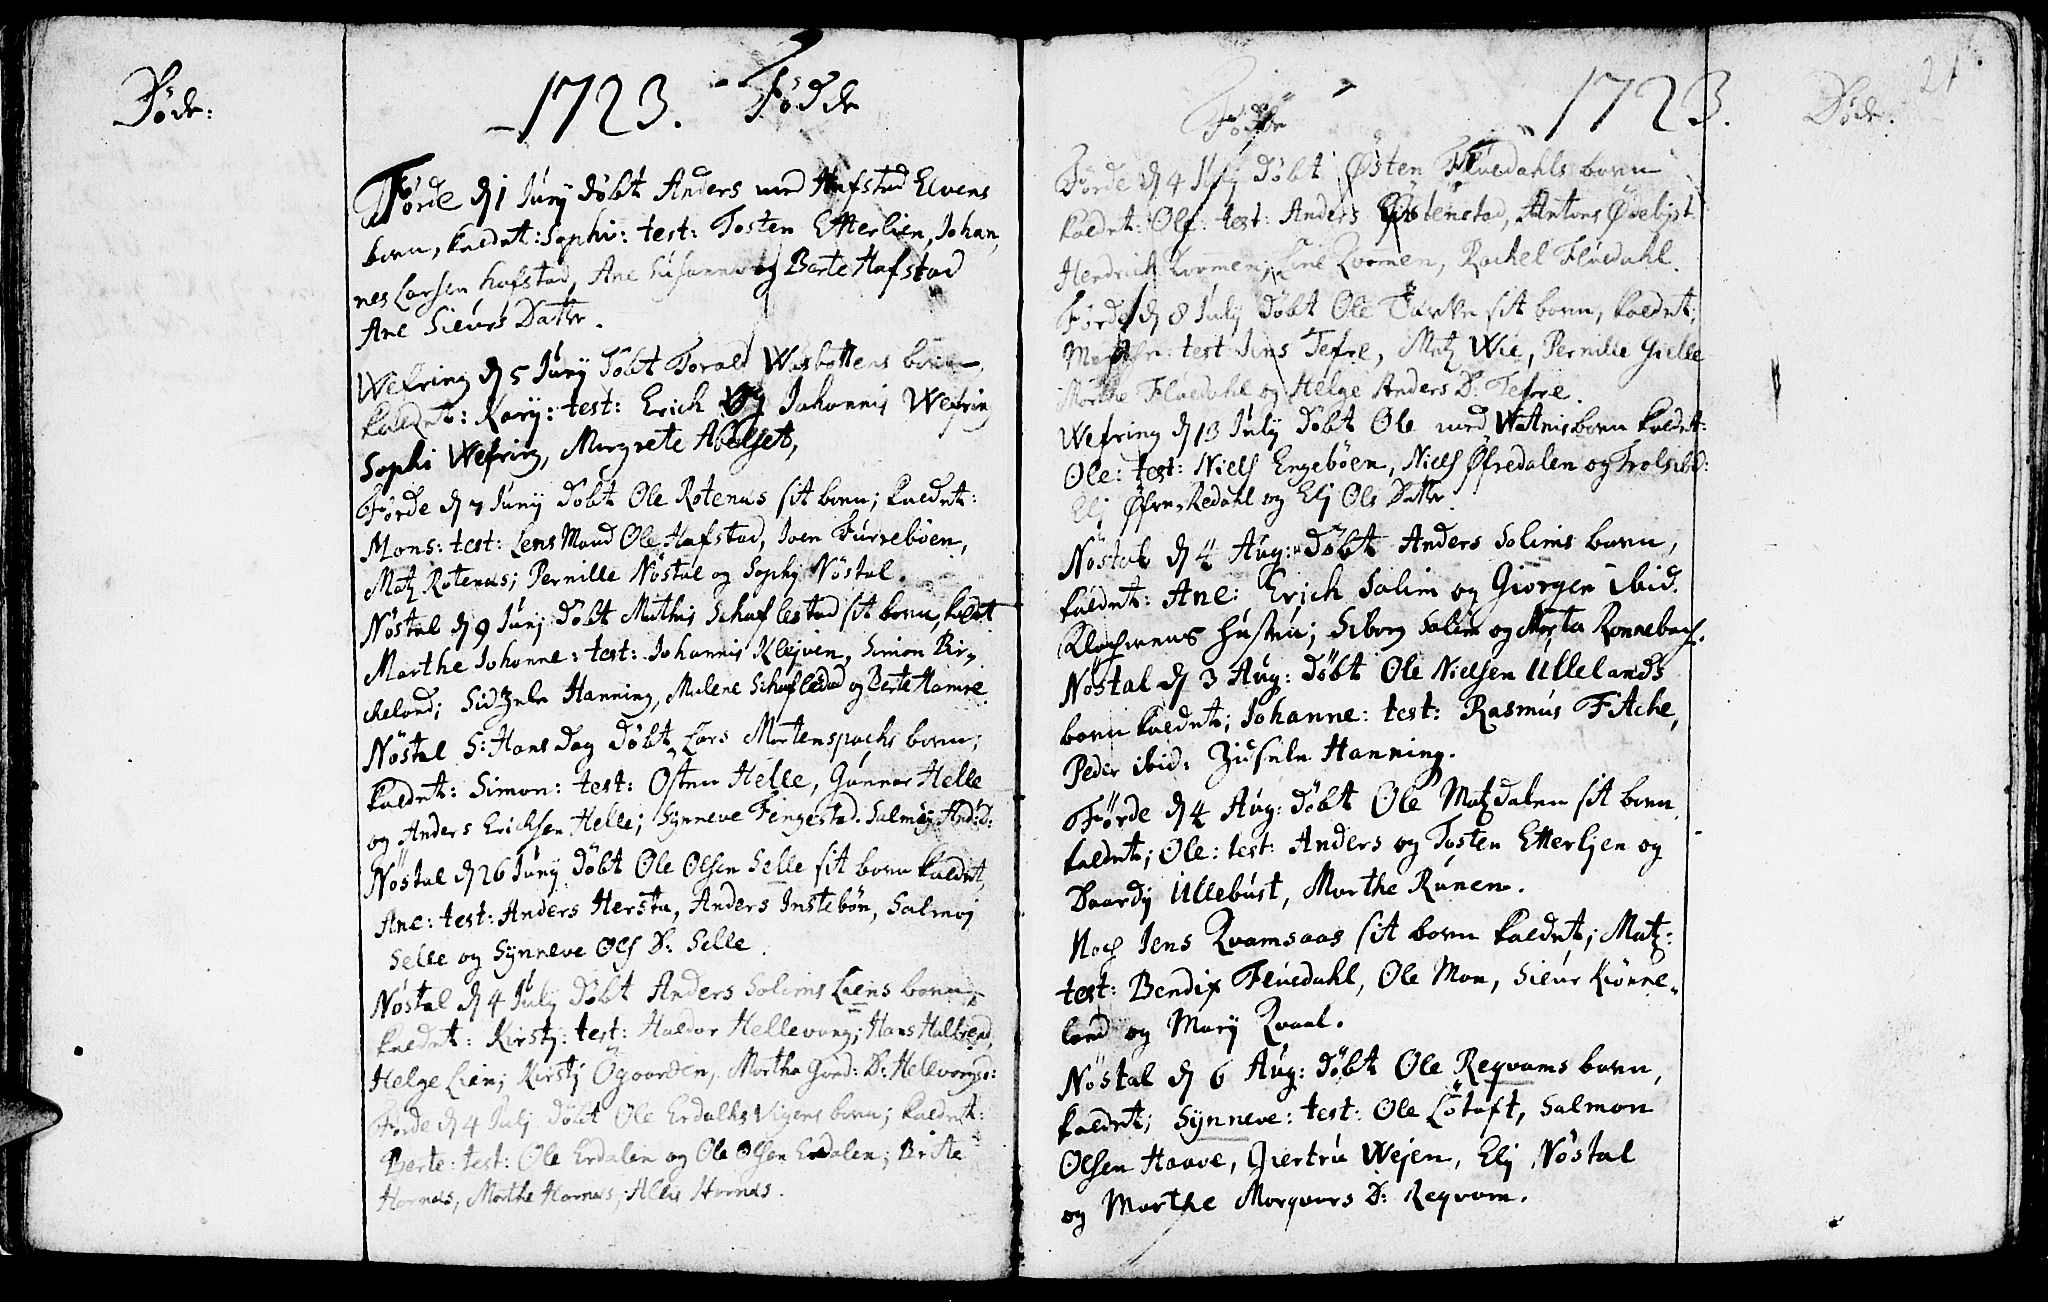 Døde:
1723. Födde
Förde d 1 Junÿ döbt Anders ved Hafstad Elvens
born, kaldet: Sophi: test: Tosten Etterlien, Johan
nes Larsen Hafstad, Ane Susanna og Berte Hafstad
Ane Siurs Datter.
Wefring d 5 Junÿ döbt Torald Wasbottens born
kaldet: Karÿ: test: Erich og Johannis Wefring
Sophi Wefring, Margrete Abelset,
Förde d 7 Junÿ döbt Ole Rotenæs sit born; kaldet:
Mons: test: Lens Mand Ole Hafstad, Joen Furreböen,
Matz Rotenæs; Pernille Nöstal og Sophj Nöstal.
Nöstal d 9 Junj döbt Mathis Schaflestad sit born, kaldt
Marthe Johanne: test: Johannis Klejven, Simon Bir,
cheland; Sidzele Hanning, Malene Schaflestad og Berte Hamre.
Nöstal S: Hans Dag döbt Lars Mortenspachs born;
kaldet: Simon: test: Osten Helle, Gunnar Helle
og Anders Erichsen Helle; Sÿnneve Fingestad. Salmoÿ And: D:
Nöstal d 26 Junÿ döbt Ole Olsen Selle sit born kaldet,
Ane: test: Anders Hersta, Anders Instebön, Salmoj
Selle og Sÿnneve Ols D: Selle.
Nöstal d 4 Julÿ döbt Anders Solims Liens born
kaldet: Kirstj: test: Haldor Hellevang; Hans Halbrend,
Helge Lien; Kirstj Ögaarden, Marthe Gund: D: Hellevangs:
Förde d 4 Julj döbt Ole Erdals Vigens born; kaldet:
Berte: test: Ole Erdalen og Ole Olsen Erdalen; Britte
Hornæs, Marthe Hornæs, Hornæs.
21
Födde 1723. Döde:
Förde d 4 Julÿ döbt Østen Fluedahls born
kaldet: Ole: test: Anders Anders Ødebÿst
Hendrich Qvamen, Qvamen, Rachel Fluedahl.
Förde d 8 Julÿ döbt Ole sit born, kaldet;
test: Jens Tefre, Matz Wie, Pernille Gielle
Marthe Fluedahl og Helge Anders D: Tefre.
Wefring d 13 Julÿ döbt Ole ved Watnis born kaldet:
Ole: test: Niels Engebøen, Niels Øfredalen og ibid:
Elj Øfredahl og Elj Ols Datter.
Nöstal d 4 Aug: döbt Anders Solims born,
kaldet: Ane: Erich Solim og Giorgen ibid.
Klochrens Hustru; Siborg Solim og Marta Ronnebach.
Nöstal d 3 Aug: döbt Ole Nielsen Ullelands
born kaldet; Johanne: test: Rasmus Fitche,
Peder ibid: Zidsele Hanning.
Förde d 4 Aug: döbt Ole Matzdalen sit born
kaldet; Ole: test: Anders og Tosten Etterljen og
Baardÿ Ullebust, Marthe Runen.
Noch Jens Qvamsaas sit born kaldet; Matz:
test: Bendix Fluedahl, Ole Moe, Siur Kiönne,
land og Marÿ Qvaal.
Nöstal d 6 Aug: döbt Ole Reqvams born,
kaldet; Sÿnneve: test: Ole Lötuft, Salmon
Olsen Haave, Giertru Wejen, Elj Nöstal
og Marthe Morqvars D: Reqvam.